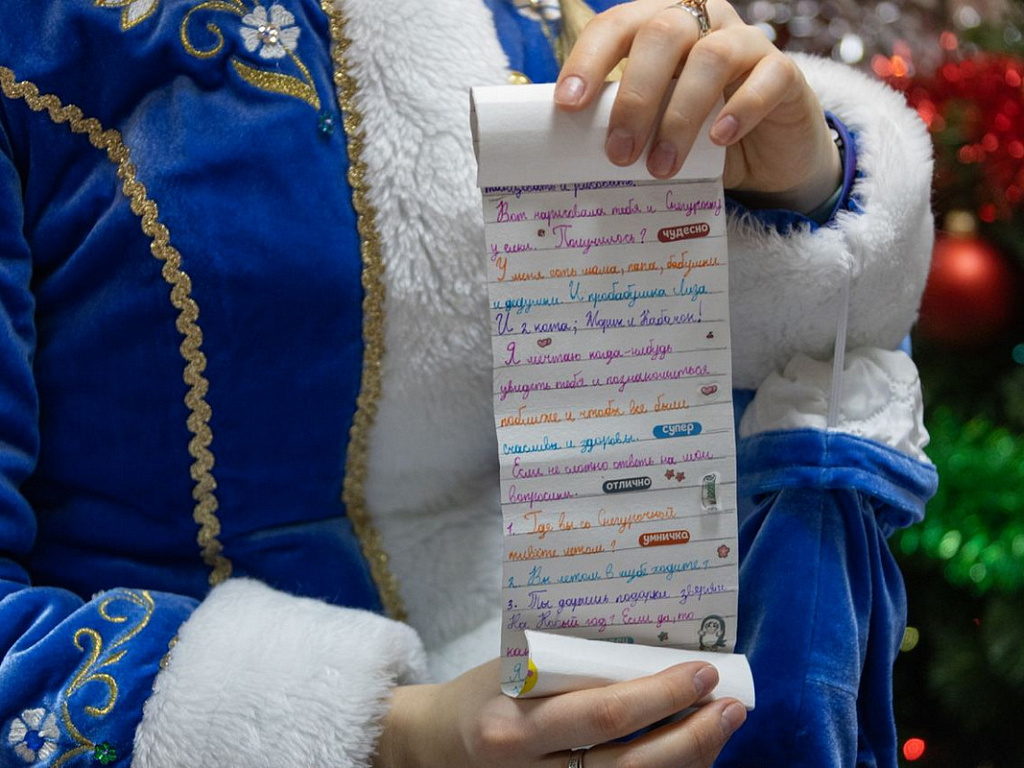 танцевать и рисовать.
Вот нарисовала тебя и Снегурочку
у ёлки. Получилось? чудесно
У меня есть мама, папа, бабушки
и дедушки. И прабабушка Лиза
И 2 кота; Жорик и Кабачок!
Я мечтаю когда-нибудь
увидеть тебя и познакомиться
поближе и чтобы все были
счастливы и здоровы. супер
Если не сложно ответь на мои
вопросики. отлично
1. Где вы со Снегурочкой
живёте летом? умничка
2. Вы летом в шубе ходите?
3. Ты даришь подарки зверям
На Новый год? Если да, то
Я